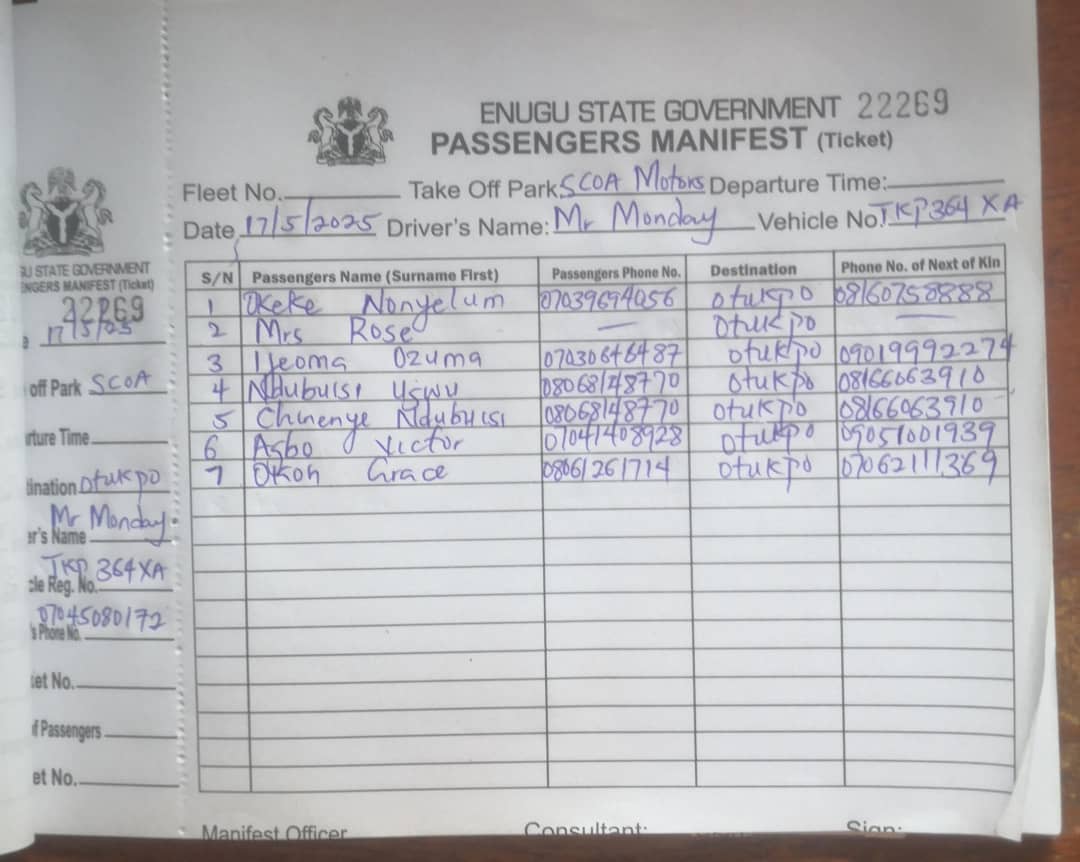 ENUGU STATE GOVERNMENT 22269
PASSENGERS MANIFEST (Ticket)
Fleet No. Take Off Park SCOA Motors Departure Time:
Date 17/5/2025 Driver's Name: Mr Monday Vehicle No. TKP 364 XA
S/N Passengers Name (Surname First) Passengers Phone No. Destination Phone No. of Next of Kin
1 Okeke Nonyelum 07039694056 Otukpo 08160758888
2 Mrs Rose — Otukpo —
3 Ijeoma Ozuma 07030646487 Otukpo 09019992274
4 Ndubuisi Ugwu 08068148770 Otukpo 08166063910
5 Chinenye Ndubuisi 08068148770 Otukpo 08166063910
6 Agbo Victor 07041408928 Otukpo 09051001939
7 Okoh Grace 08061261714 Otukpo 07062111369
Manifest Officer Consultant: Sign:
U STATE GOVERNMENT
NGERS MANIFEST (Ticket)
22269
e 17/5/25
off Park SCOA
rture Time
tination Otukpo
er's Name Mr Monday
cle Reg. No. TKP 364XA
's Phone No. 07045080172
ket No.
f Passengers
et No.